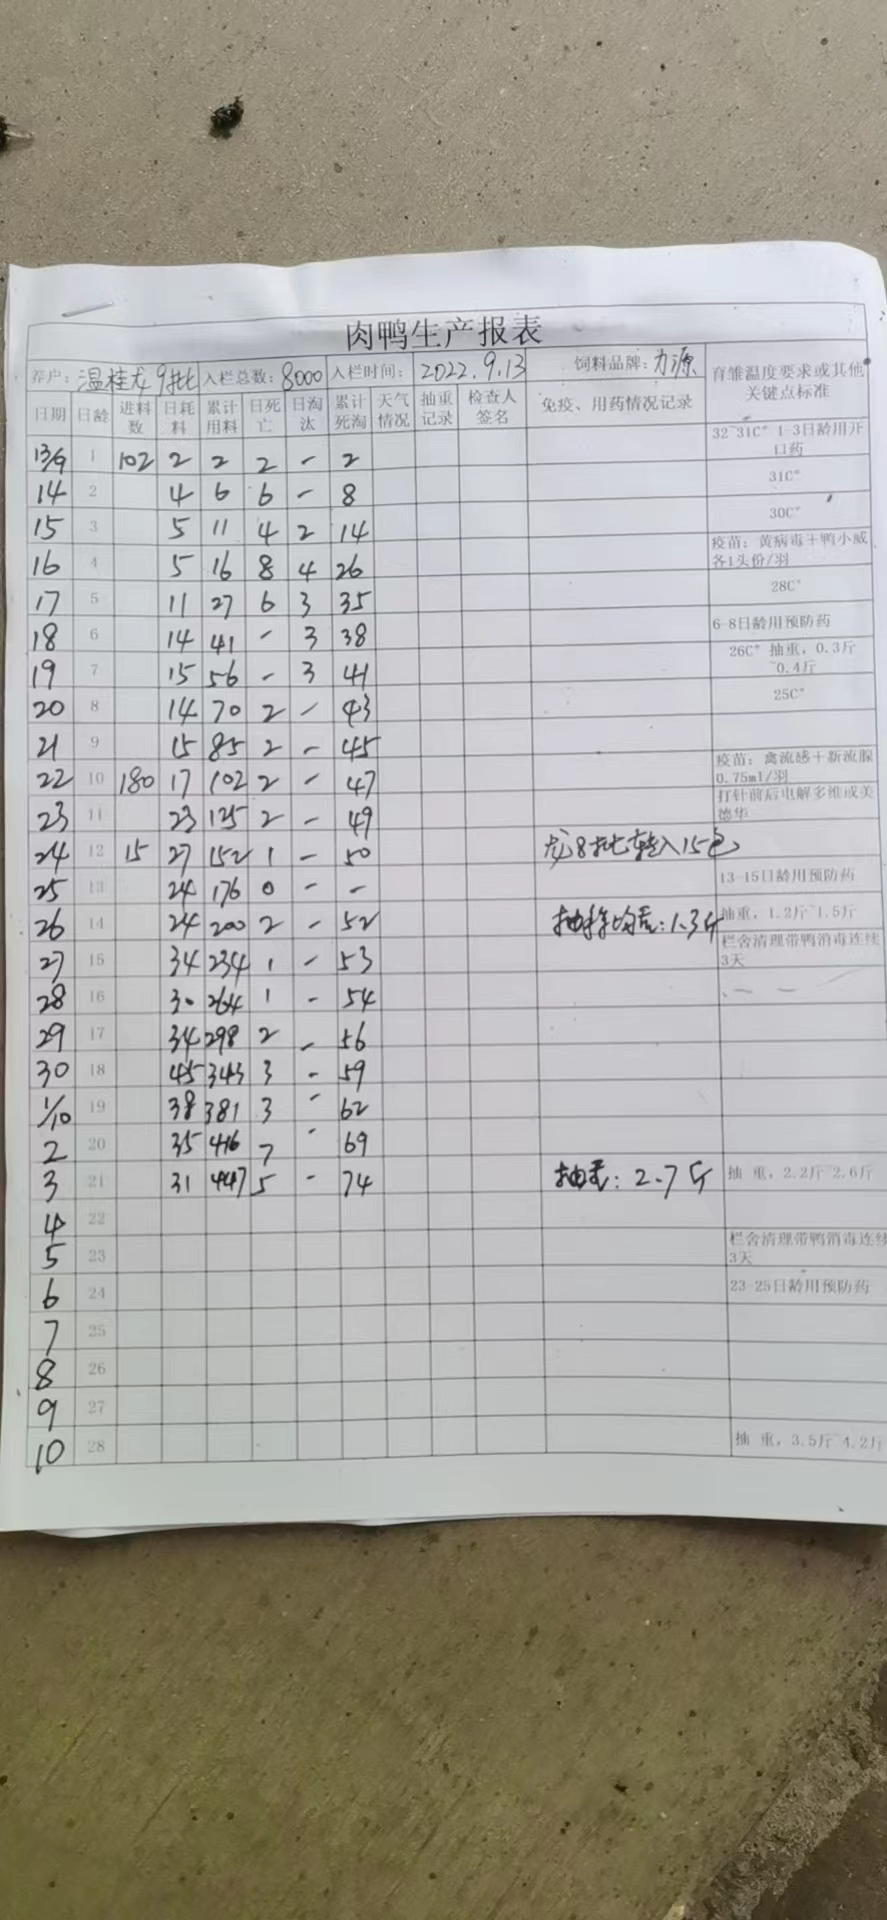 肉鸭生产报表
养户: 温桂龙9批 入栏总数: 8000 入栏时间: 2022.9.13 饲料品牌: 力源 育雏温度要求或其他关键点标准
日期 日龄 进料数 日耗料 累计用料 日死亡 日淘汰 累计死淘 天气情况 抽重记录 检查人签名 免疫、用药情况记录
13/9 1 102 2 2 2 - 2 32~31C° 1-3日龄用开口药
14 2 4 6 6 - 8 31C°
15 3 5 11 4 2 14 30C°
16 4 5 16 8 4 26 疫苗: 黄病毒+鸭小威各1头份/羽
17 5 11 27 6 3 35 28C°
18 6 14 41 - 3 38 6-8日龄用预防药
19 7 15 56 - 3 41 26C° 抽重, 0.3斤~0.4斤
20 8 14 70 2 - 43 25C°
21 9 15 85 2 - 45
22 10 180 17 102 2 - 47 疫苗: 禽流感+新流腺0.75ml/羽
23 11 23 125 2 - 49 打针前后电解多维或美德华
24 12 15 27 152 1 - 50 龙8批转入15包
25 13 24 176 0 - - 13-15日龄用预防药
26 14 24 200 2 - 52 抽称均重: 1.3斤 抽重, 1.2斤~1.5斤
27 15 34 234 1 - 53 栏舍清理带鸭消毒连续3天
28 16 30 264 1 - 54
29 17 34 298 2 - 56
30 18 45 343 3 - 59
1/10 19 38 381 3 - 62
2 20 35 416 7 - 69
3 21 31 447 5 - 74 抽重: 2.7斤 抽 重, 2.2斤~2.6斤
4 22
5 23 栏舍清理带鸭消毒连续3天
6 24 23-25日龄用预防药
7 25
8 26
9 27
10 28 抽 重, 3.5斤~4.2斤